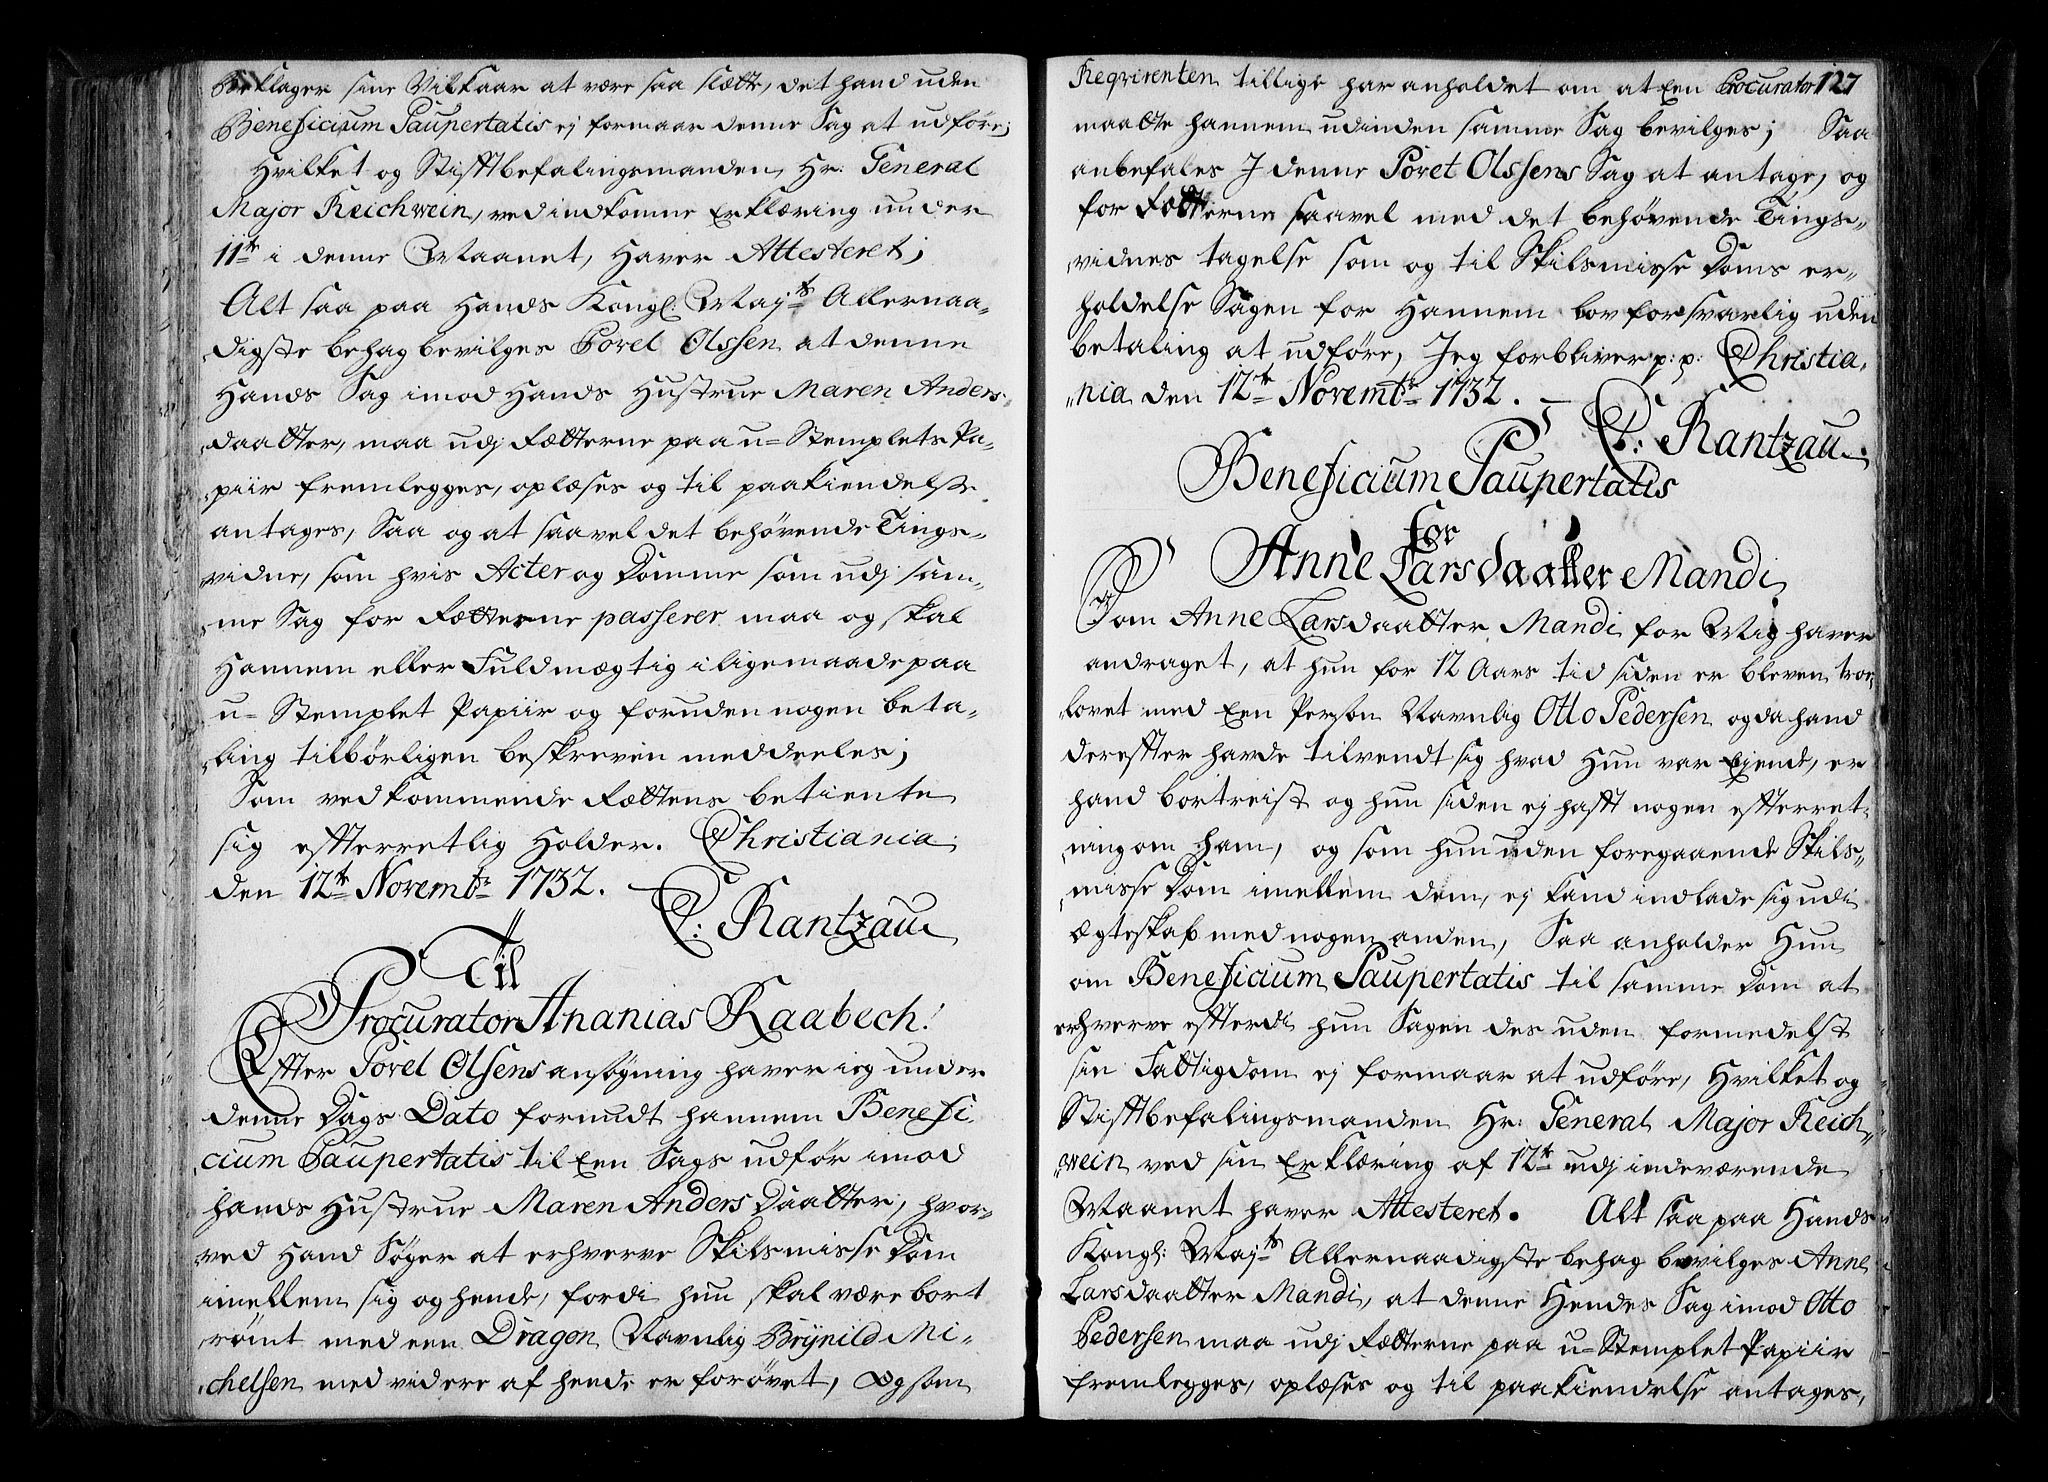 Beklager sine Vilkaar at være saa slætte, det hand uden
Beneficium Paupertatis ej formaar denne Sag at udføre;
Hvilket og Stifftbefalingsmanden, Hr: General
Major Reichwein, ved indkomne Erklæring under
11te i denne Maanet, haver Attesteret;
Alt saa paa Hands Kongl. Mayts Allernaa-
digste behag bevilges Povel Olssen at denne
Hands Sag imod Hands Hustrue Maren Anders-
daatter, maa udj Rætterne paa u-Stemplet Pa-
piir fremlegges, oplæses og til paakiendelse
antages, Saa og at saavel det behøvende Tings-
vidne, som hvis Acter og Domme som udj sam-
me Sag for Rætterne passerer maa og skal
Hannem eller Fuldmægtig i ligemaade paa
u-Stemplet Papiir og foruden nogen beta-
ling tilbørligen beskreven meddeeles;
Som vedkommende Rættens betiente
sig efterretlig Holder. Christiania
den 12te Novembr 1732.
C: Rantzau
Til
Procurator Ananias Raabech!
Effter Povel Olsens ansøgning haver ieg under
denne Dags Dato forundt hannem Benefi-
cium Paupertatis til Een Sags udfør imod
hands Hustrue Maren Anders Daatter, hvor-
ved Hand Søger at erhverve Skilsmisse Dom
imellem sig og hende, fordi hun skal være bort
rømt med een Dragon Navnlig Brÿnild Mi-
chelsen med videre af hende er forøvet, Og som
Reqvirenten tillige har anholdet om at Een Procurator 127
maatte hannem udinden samme Sag bevilges; Saa
anbefales J denne Povel Olssens Sag at antage, og
for Rætterne saavel med det behøvende Tings-
vidnes tagelse som og til Skilsmisse Doms er-
holdelse Sagen for Hannem lovforsvarlig uden
betaling at udføre, Jeg forbliver p: p: Christia-
nia den 12te Novembr 1732.
C: Rantzau
Beneficium Paupertatis
for
Anne Larsdaatter Mandi
Som Anne Larsdaatter Mandi for Mig haver
andraget, at hun for 12 Aars tid siden er bleven tro-
lovet med Een Person Navnlig Otto Pedersen og da hand
dereffter havde tilvendt sig hvad Hun var Ejende, er
hand bortreist og hun siden ej hafft nogen efterret-
ning om ham, og som hun uden foregaaende Skils-
misse Dom imellem dem, ej kand indlade sig udi
ægteskab med nogen anden, Saa anholder Hun
om Beneficium Paupertatis til samme Dom at
erhverve efterdi hun Sagen des uden formedelst
sin Fattigdom ej formaar at udføre, Hvilket og
Stifftbefalingsmanden Hr: General Major Reich-
wein ved sin Erklæring af 12te udj indeværende
Maanet haver Attesteret. Alt saa paa Hands
Kongl: Mayts Allernaadigste behag bevilges Anne
Larsdaatter Mandi, at denne Hendes Sag imod Otto
Pedersen maa udj Rætterne paa u-Stemplet Papiir
fremlegges, oplæses og til paakiendelse antages,